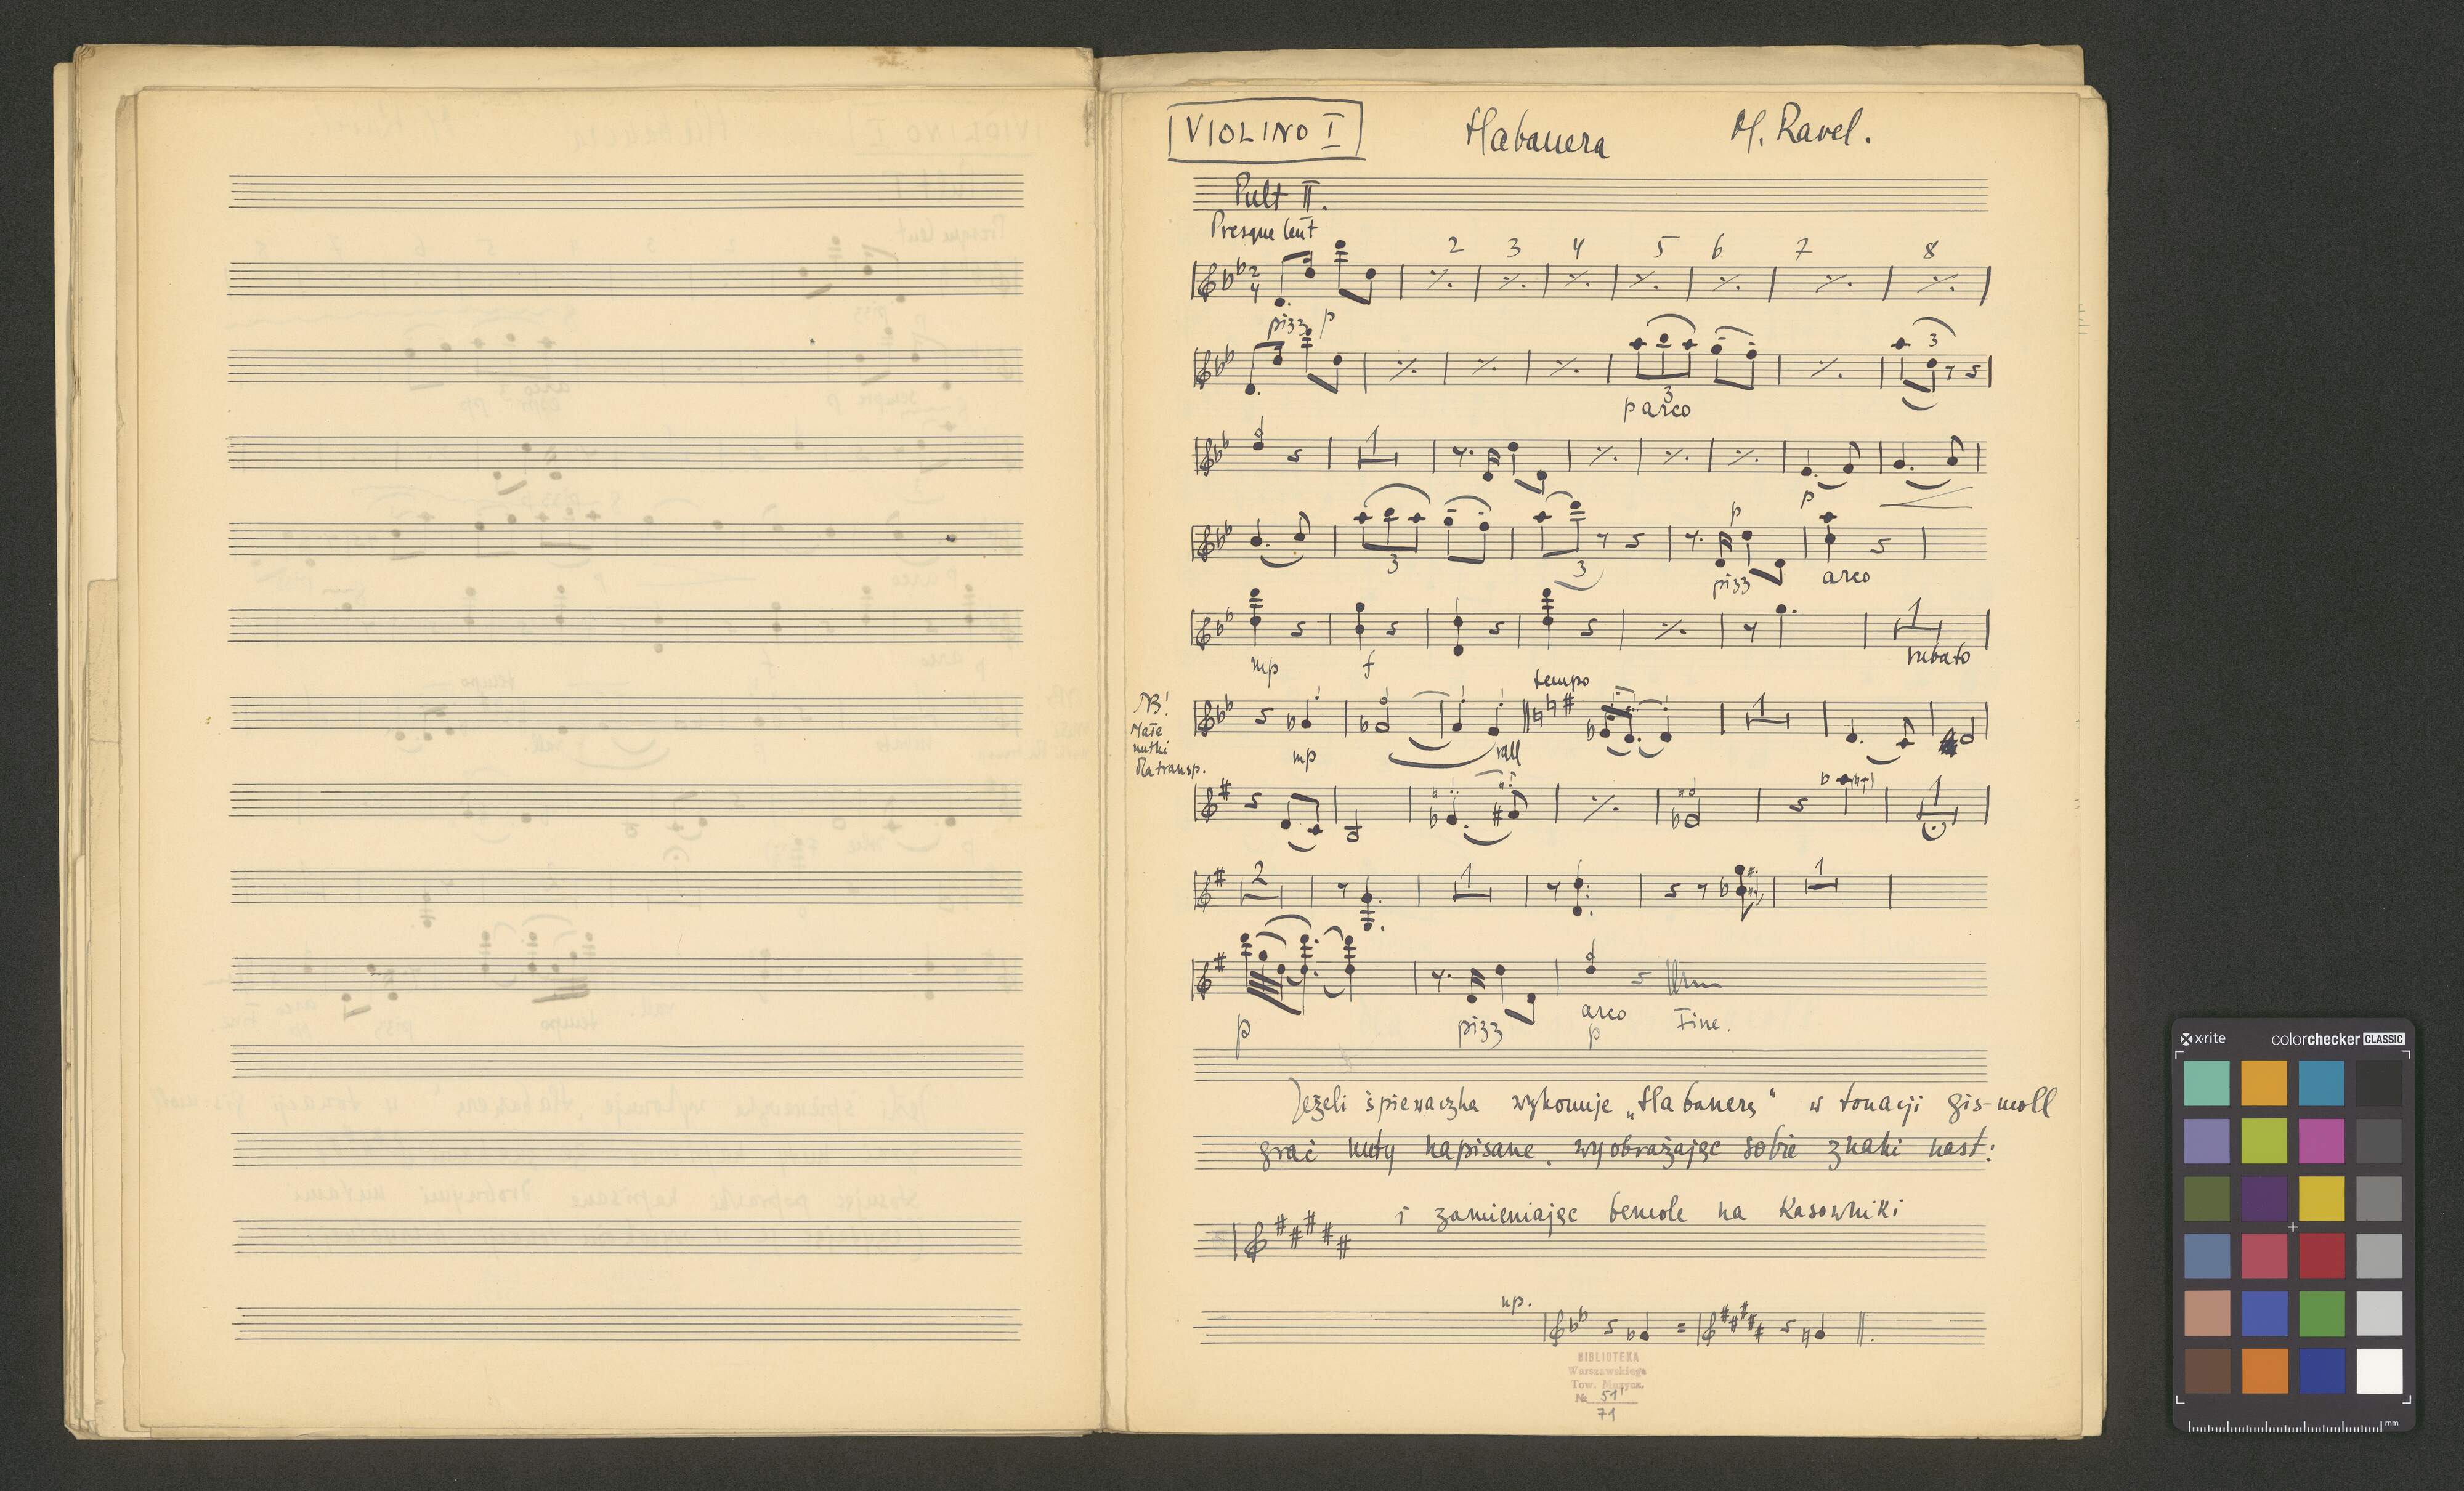 VIOLINO I Habanera M. Ravel.
Pult II.
Presque lent
2 3 4 5 6 7 8
2
4
pizz p
3
3
p arco
1
p
p
3 3 pizz arco
1
mp f rubato
tempo
NB!
Małe
nutki
dla transp.
1
mp rall
1
2 1 1
p pizz arco
p
Fine.
Jeżeli śpiewaczka wykonuje „Habanerę" w tonacji gis-moll
grać nuty napisane, wyobrażając sobie znaki nast:
i zamieniając bemole na kasowniki
np.
=
BIBLIOTEKA
Warszawskiego
Tow. Muzycz.
№ 51
71
x·rite colorchecker CLASSIC
mm